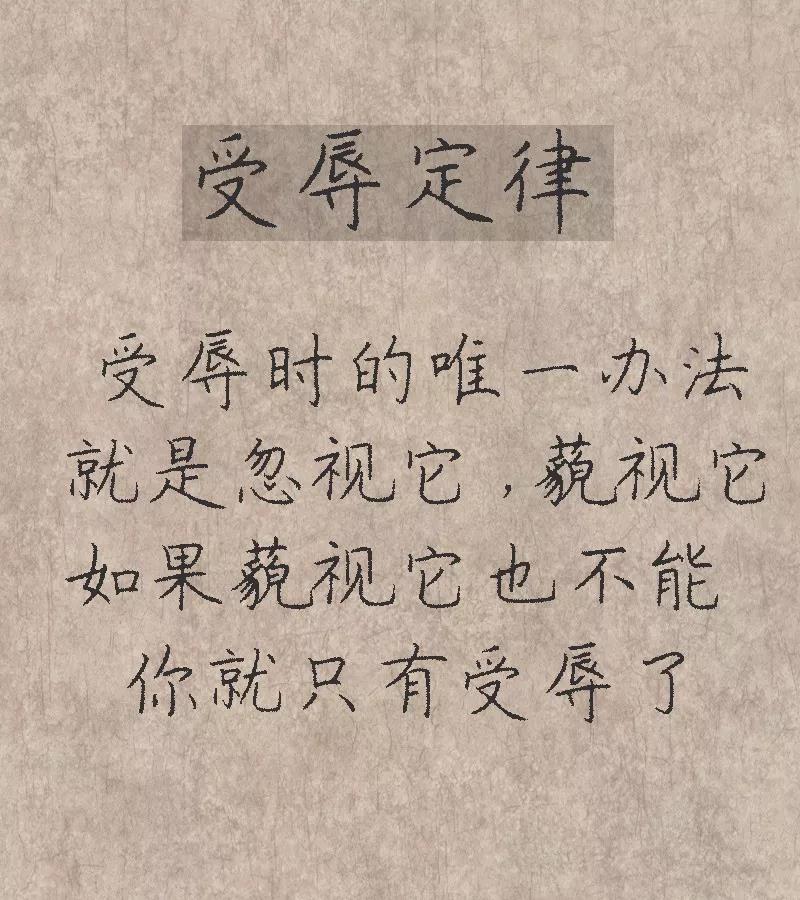 受辱定律
受辱时的唯一办法
就是忽视它,藐视它
如果藐视它也不能
你就只有受辱了